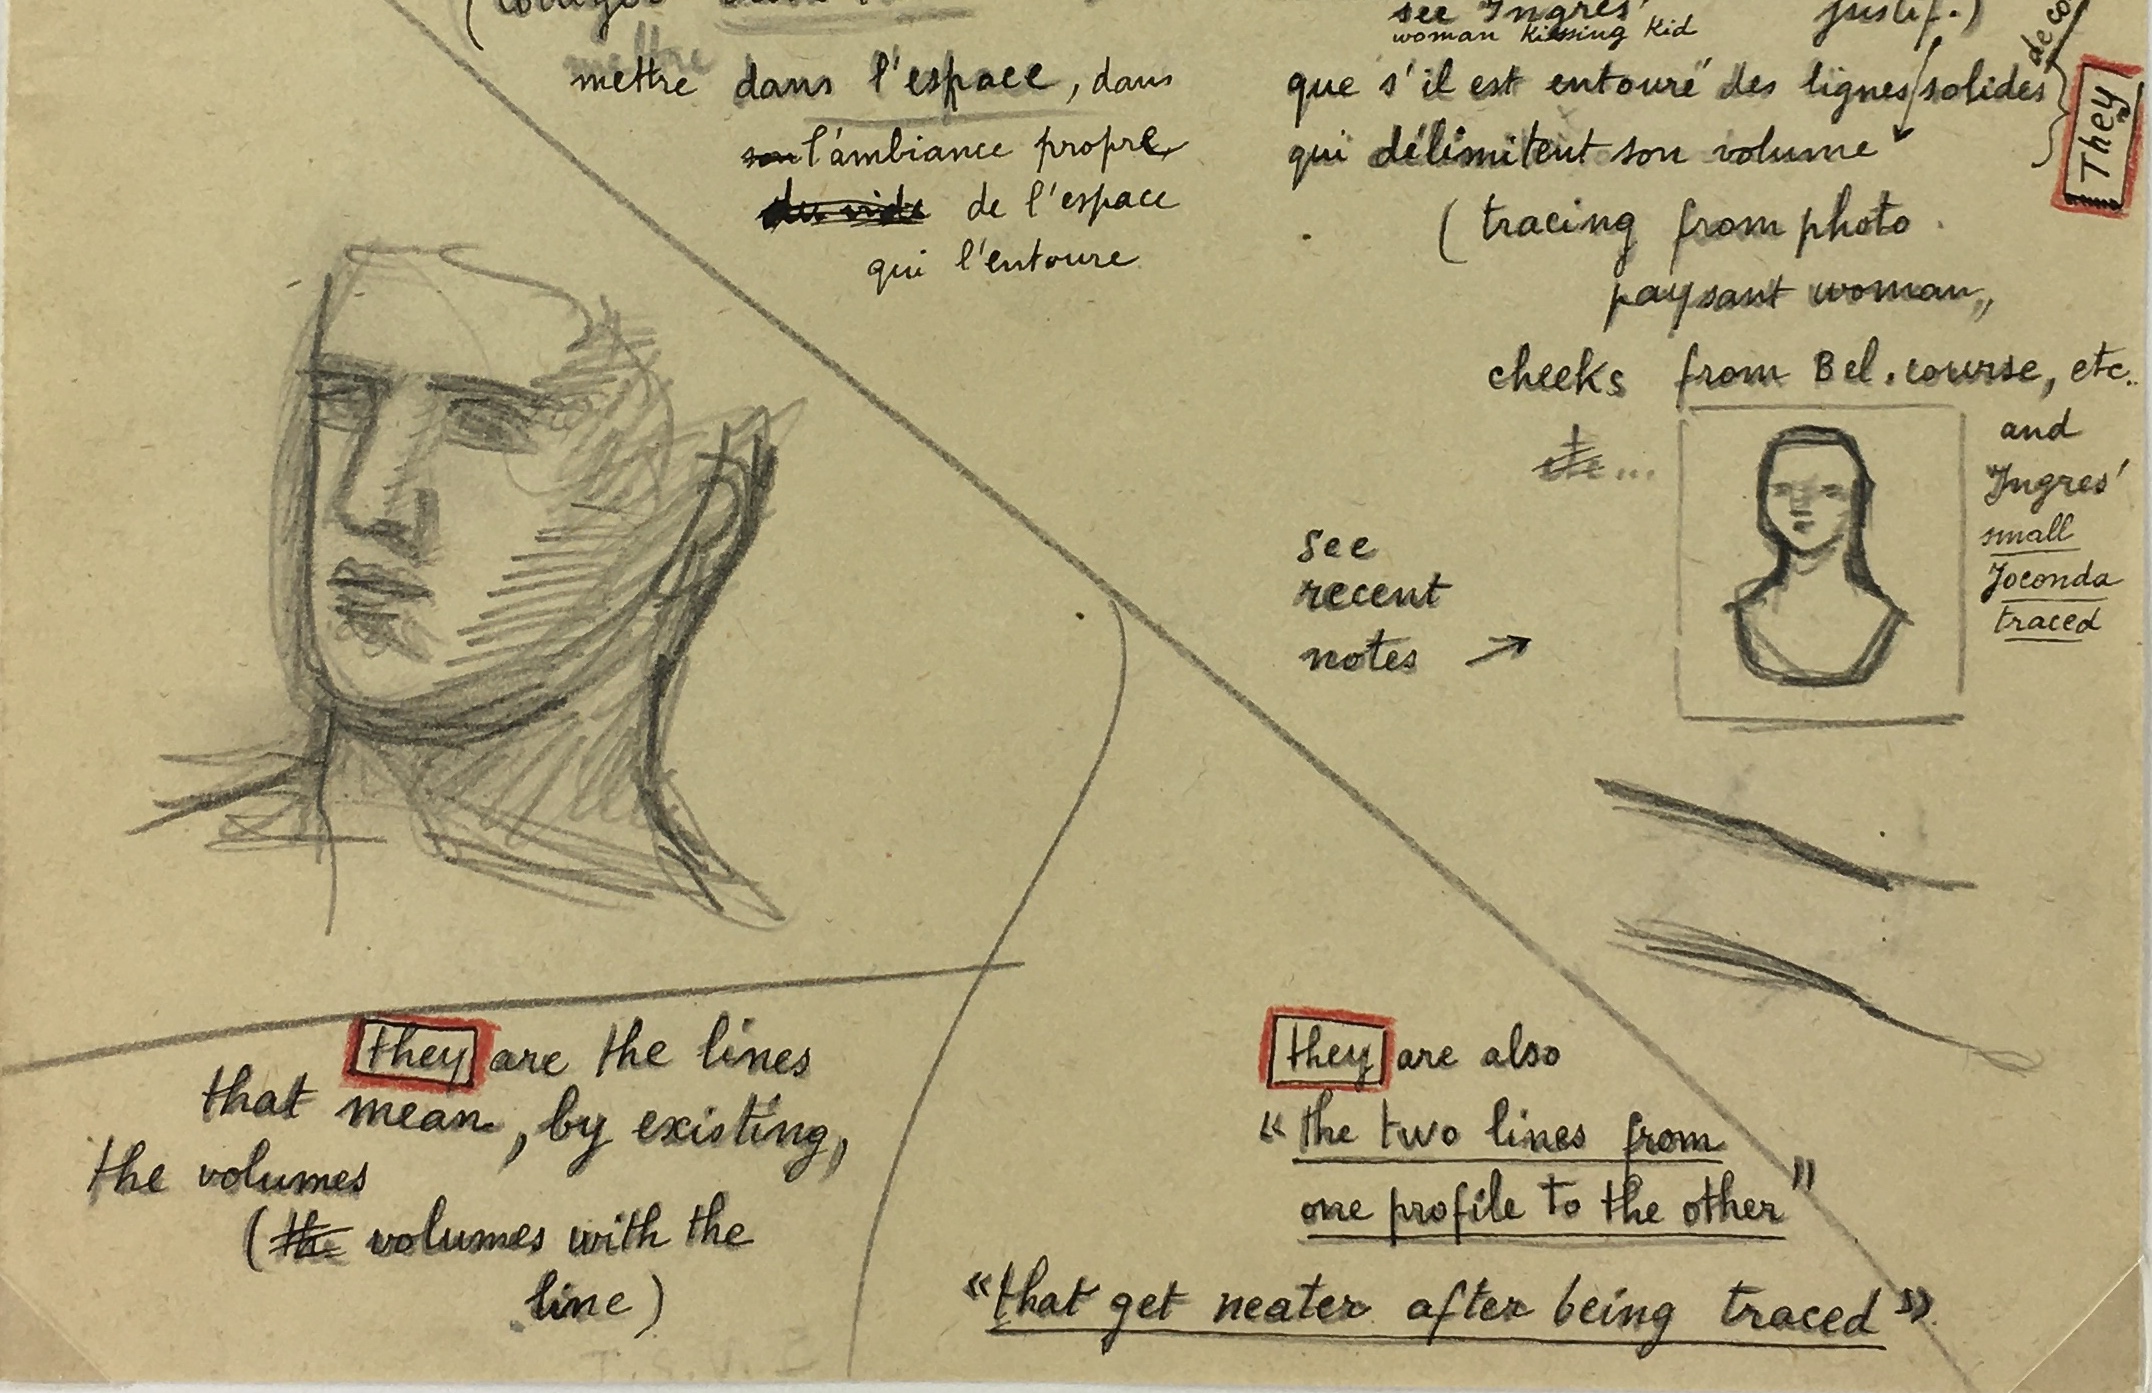 mettre
mettre dans l'espace, dans
son l'ambiance propre
du vide de l'espace
qui l'entoure
see Ingres'
woman kissing kid
justif.)
que s'il est entouré des lignes solides
qui délimitent son volume
They
(tracing from photo
paysant woman,,
cheeks from Bel. course, etc..
etc...
and
Ingres'
small
Joconda
traced
see
recent
notes →
they are the lines
that mean, by existing,
the volumes
(the volumes with the
line)
they are also
"the two lines from
one profile to the other"
"that get neater after being traced"